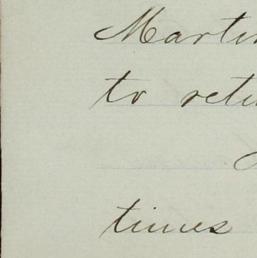 Martin
to retu
times